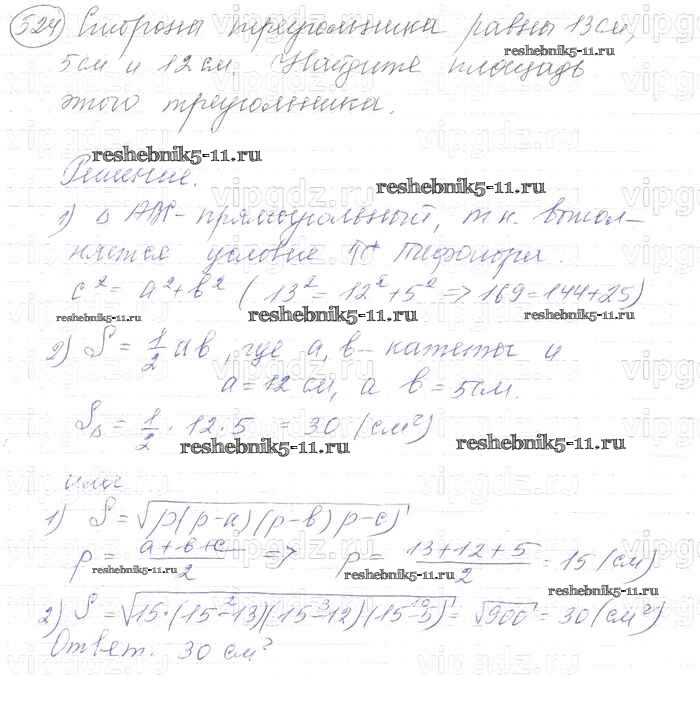 524 Стороны треугольника равны 13 см,
reshebnik5-11.ru
5 см и 12 см. Найдите площадь
этого треугольника.
reshebnik5-11.ru
Решение.
reshebnik5-11.ru
1) Δ АВС - прямоугольный, т.к. выпол-
няется условие Т Пифагора.
c² = a² + b² ( 13² = 12² + 5² => 169 = 144 + 25)
reshebnik5-11.ru reshebnik5-11.ru reshebnik5-11.ru
2) S = 1/2 ab, где a, b - катеты и
a = 12 см, а b = 5 см.
SΔ = 1/2 · 12 · 5 = 30 (см²)
reshebnik5-11.ru reshebnik5-11.ru
или
1) S = √p(p-a)(p-b)(p-c)
p = a+b+c/2 => p = 13+12+5/2 = 15 (см)
reshebnik5-11.ru reshebnik5-11.ru
reshebnik5-11.ru
2) S = √15·(15-13)(15-12)(15-5) = √900 = 30 (см²)
Ответ. 30 см²